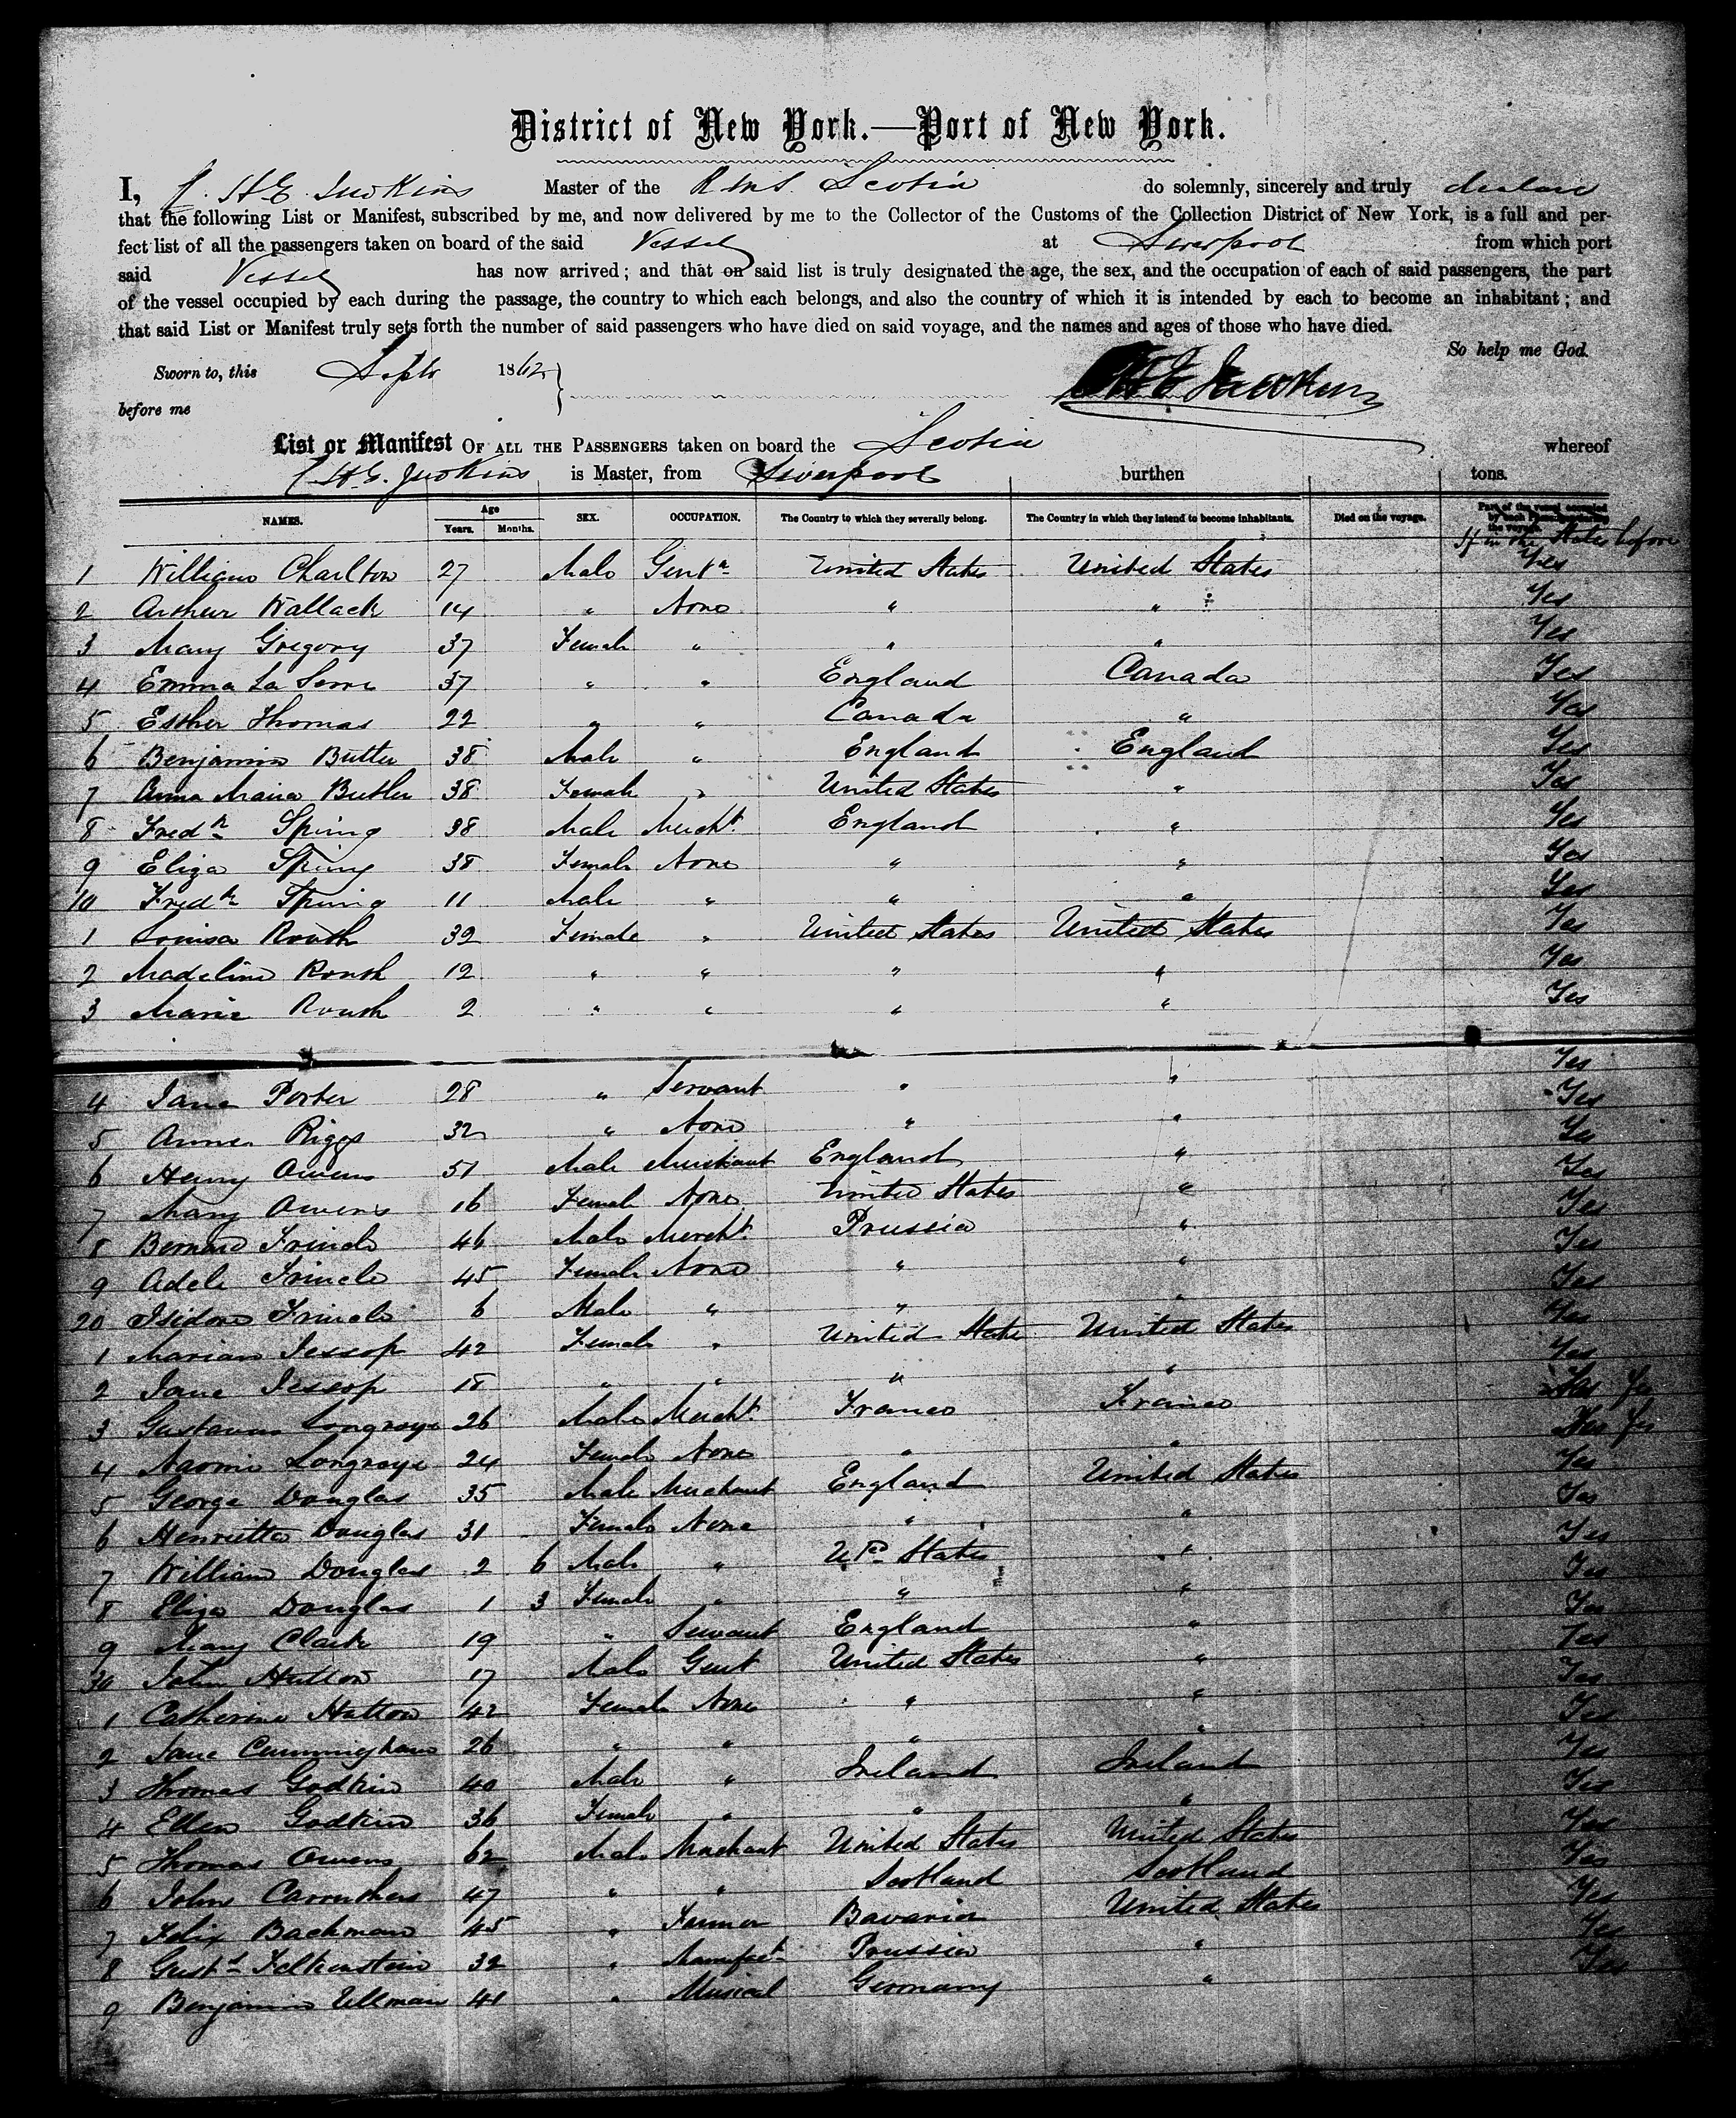 District of New York.—Port of New York.
I, C. H. E. Judkins Master of the R.M.S. Scotia do solemnly, sincerely and truly declare
that the following List or Manifest, subscribed by me, and now delivered by me to the Collector of the Customs of the Collection District of New York, is a full and per-
fect list of all the passengers taken on board of the said Vessel at Liverpool from which port
said Vessel has now arrived; and that on said list is truly designated the age, the sex, and the occupation of each of said passengers, the part
of the vessel occupied by each during the passage, the country to which each belongs, and also the country of which it is intended by each to become an inhabitant; and
that said List or Manifest truly sets forth the number of said passengers who have died on said voyage, and the names and ages of those who have died.
So help me God.
Sworn to, this Septr 1862
before me
Judkins
List or Manifest OF ALL THE PASSENGERS taken on board the Scotia whereof
C H E. Judkins is Master, from Liverpool burthen tons.
NAMES. Age Years. Months. SEX. OCCUPATION. The Country to which they severally belong. The Country in which they intend to become inhabitants. Died on the voyage. Part of the vessel occupied by each
If in the States before
1 William Charlton 27 Male Gentn United States United States Yes
2 Arthur Wallack 14 " None " " Yes
3 Mary Gregory 37 Female " " " Yes
4 Emma La Serre 37 " " England Canada Yes
5 Esther Thomas 22 " " Canada " Yes
6 Benjamin Butler 38 Male " England England Yes
7 Anna Maria Butler 38 Female " United States " Yes
8 Fredk Spring 38 Male Mercht England " Yes
9 Eliza Spring 38 Female None " " Yes
10 Fredk Spring 11 Male " " " Yes
1 Louisa Routh 32 Female " United States United States Yes
2 Madeline Routh 12 " " " " Yes
3 Marie Routh 2 " " " " Yes
4 Jane Porter 28 " Servant " " Yes
5 Anne Riggs 32 " None " " Yes
6 Henry Owens 51 Male Merchant England " Yes
7 Mary Owens 16 Female None United States " Yes
8 Bernard 46 Male Mercht Prussia " Yes
9 Adele 45 Female None " " Yes
20 Isidore 6 Male " " " Yes
1 Marian Jessop 42 Female " United States United States Yes
2 Jane Jessop 18 " " " " Yes
3 Gustavus Longraye 26 Male Mercht France France Yes
4 Naomie Longraye 24 Female None " " Yes
5 George Douglas 35 Male Merchant England United States Yes
6 Henrietta Douglas 31 Female None " " Yes
7 William Douglas 2 6 Male " Utd States " Yes
8 Eliza Douglas 1 3 Female " " " Yes
9 Mary Clark 19 " Servant England " Yes
30 John Hutton 17 Male Gent United States " Yes
1 Catherine Hutton 42 Female None " " Yes
2 Jane Cunningham 26 " " " " Yes
3 Thomas Godkin 40 Male " Ireland Ireland Yes
4 Ellen Godkin 36 Female " " " Yes
5 Thomas Owens 62 Male Merchant United States United States Yes
6 John Carruthers 47 " " Scotland Scotland Yes
7 Felix Bachman 45 " Farmer Bavaria United States Yes
8 Gust Felkenstein 32 " Manufact Prussia " Yes
9 Benjamin Ullman 41 " Musical Germany " Yes